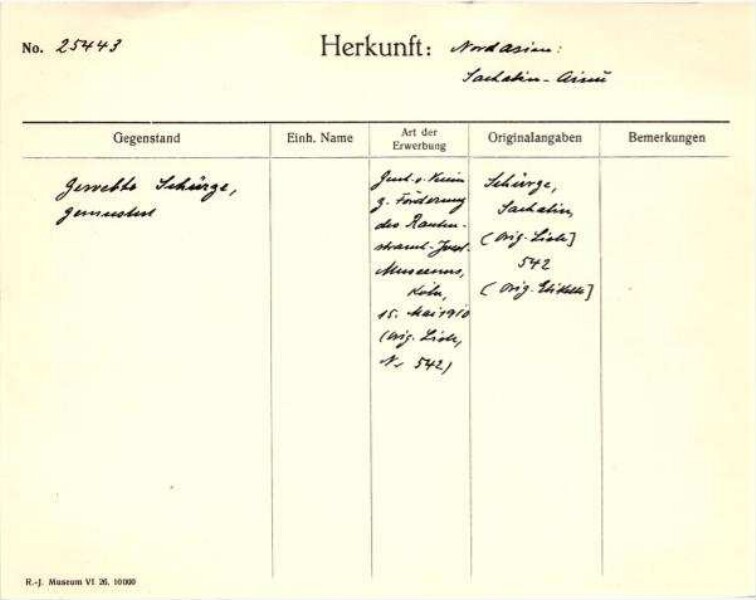 No. 25443
Herkunft: Nordasien:
Sachalin-Ainu
Gegenstand
Einh. Name
Art der
Erwerbung
Originalangaben
Bemerkungen
Gewebte Schürze,
gemustert
v. Verein
z. Förderung
des Rauten-
strauch-Joest-
Museums,
Köln,
15. Mai 1910
(Orig. Liste,
Nr 542)
Schürze,
Sachalin,
(Orig. Liste]
542
(Orig. Etikette]
R.-J. Museum VI 26. 10000